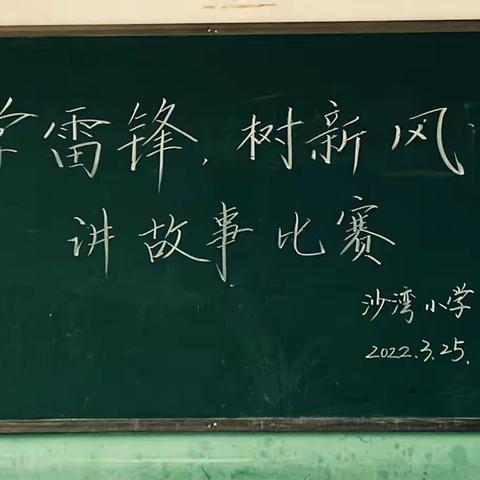 学雷锋,树新风
讲故事比赛
沙湾小学
2022.3.25.